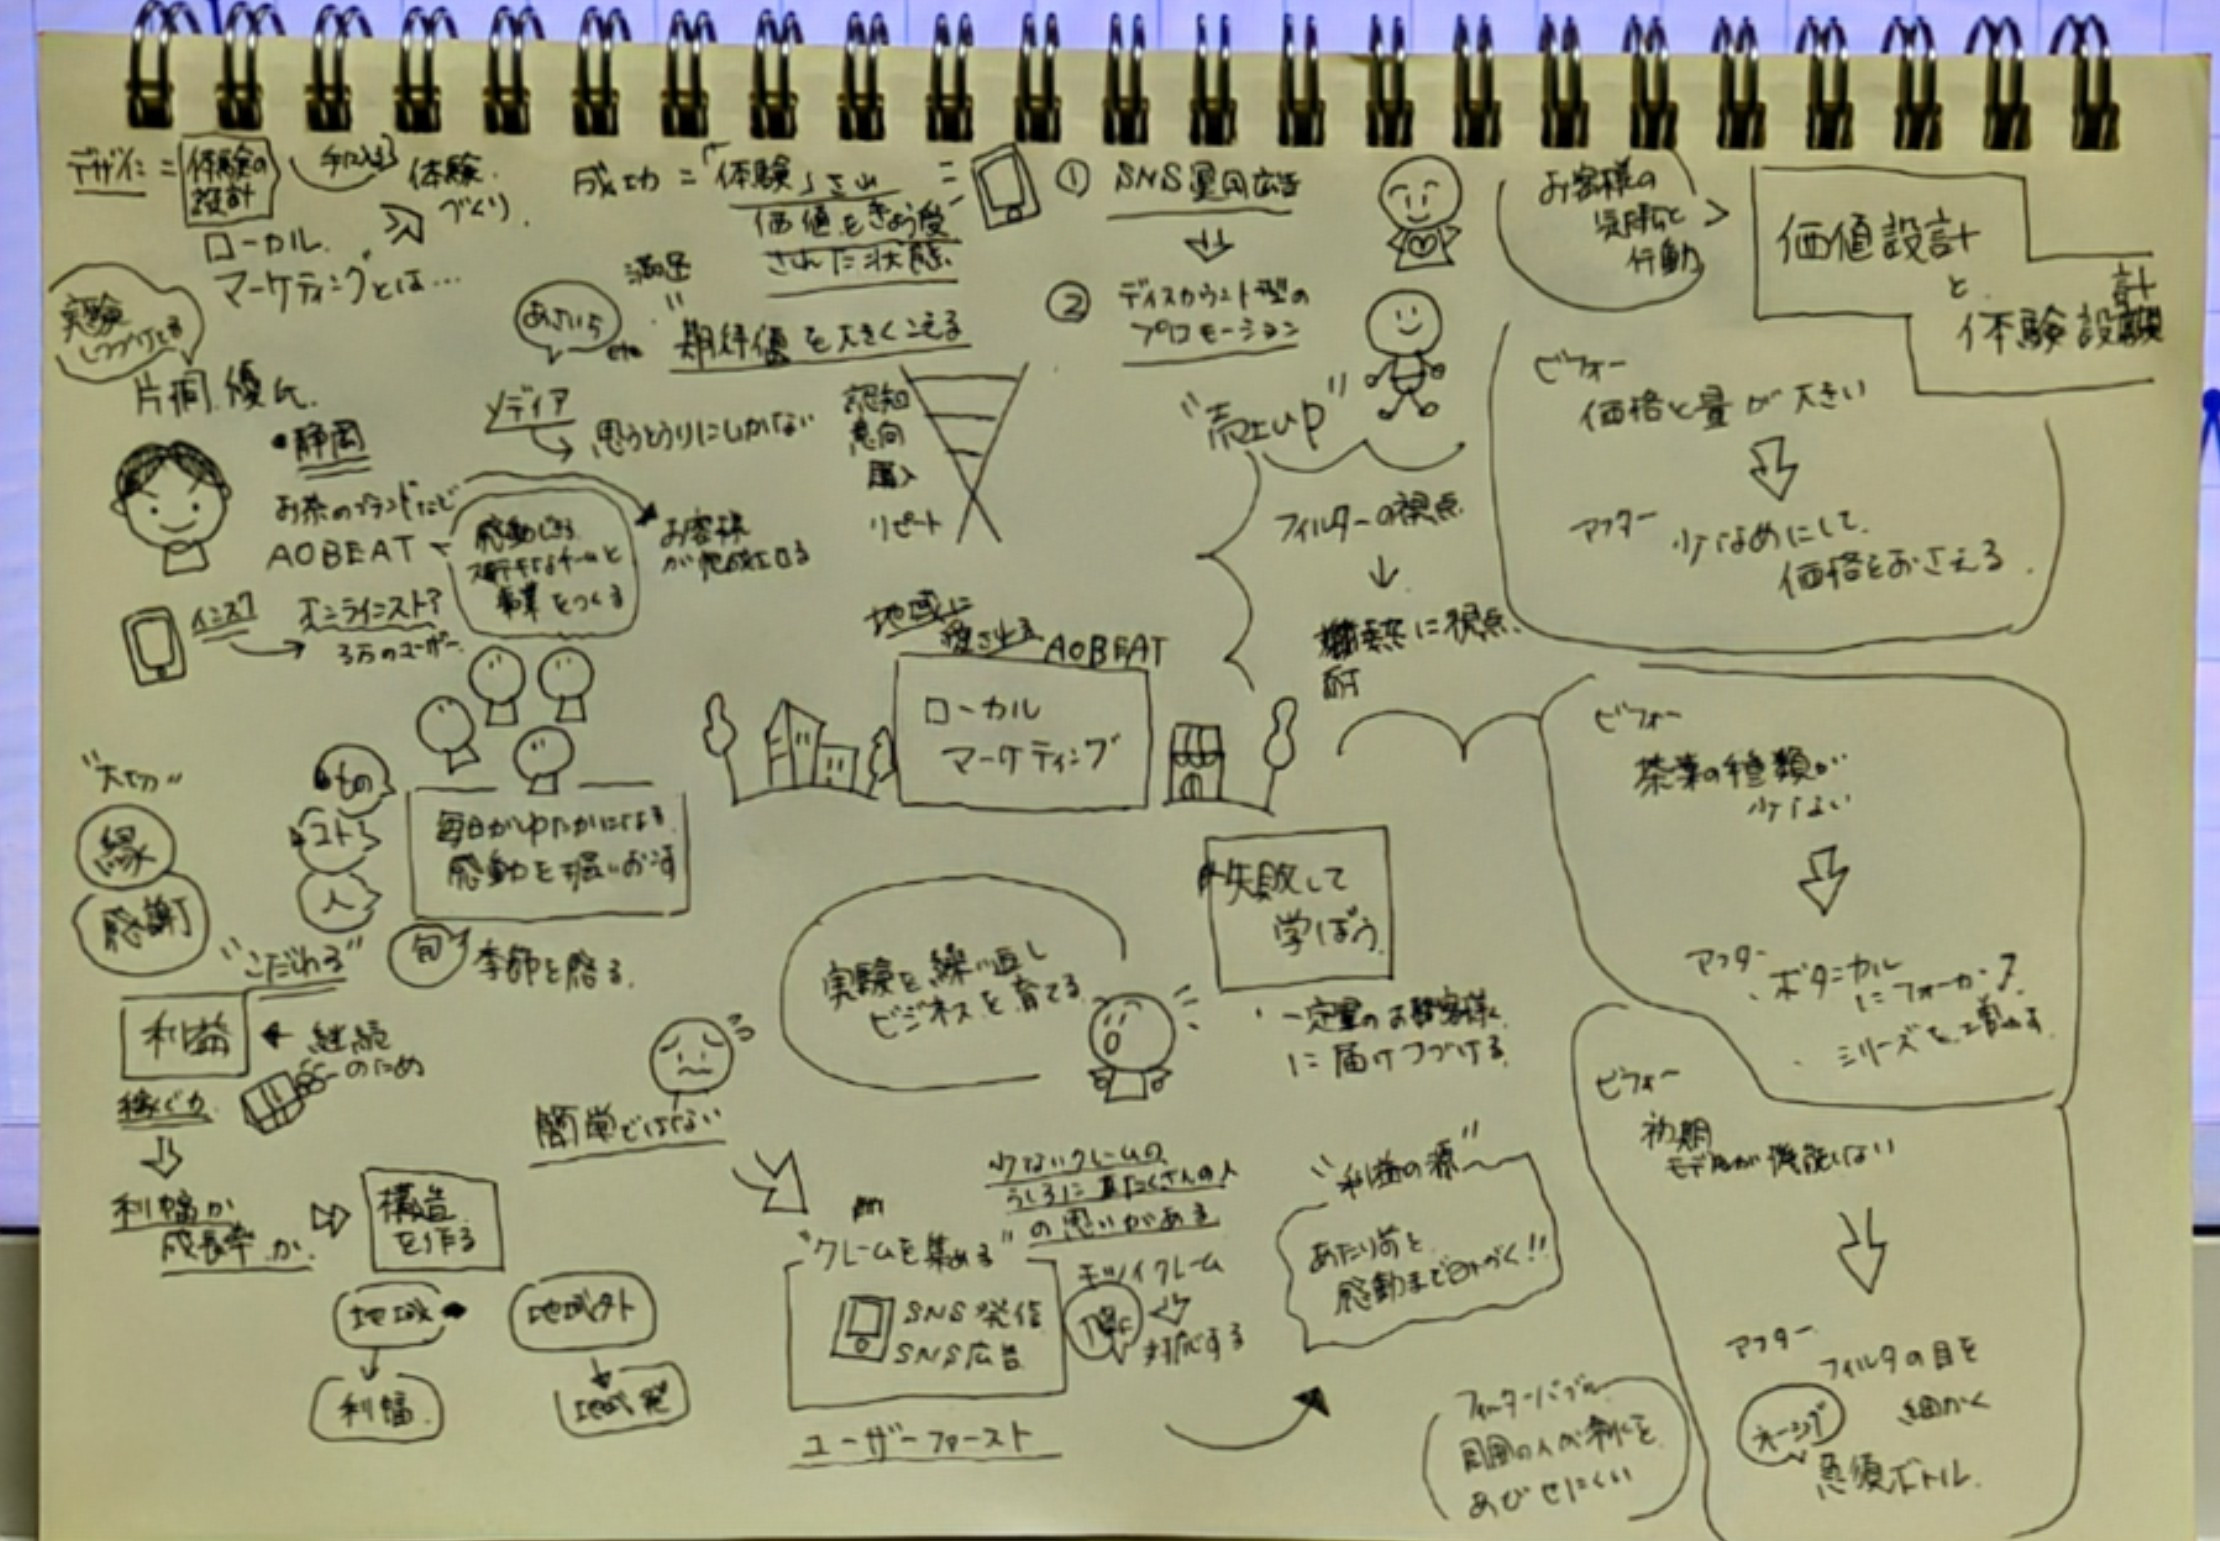 デザイン = 体験の
設計
体験
づくり
ローカル
マーケティングとは…
実験
しつづける
片桐 優氏
・静岡
お茶のブランドなど
AOBEAT
インスタ
オンラインストア
3万のユーザー
感動できる
ステキなチームと
事業をつくる
お客様
メディア
思うとうりにしかない
成功 = 「体験」され
価値をきょう受
された状態
満足
=
期待値を大きくこえる
etc
認知
意向
購入
リピート
① SNS運用広告
② ディスカウント型の
プロモーション
"売上up"
フィルターの視点
に視点
お客様の
気持ちと
行動
価値設計
と
体験設計
ビフォー
価格と量が大きい
アフター
少なめにして
価格をおさえる
ビフォー
茶葉の種類が
少ない
アフター
ボタニカル
にフォーカス
シリーズを増やす
ビフォー
初期
モデルが機能しない
アフター
フィルタの目を
細かく
急須ボトル
地域に
愛される AOBEAT
ローカル
マーケティング
"大切"
縁
感謝
もの
コト
人
毎日がゆたかになる
感動を掘りおこす
旬
季節を贈る
"こだわる"
利益
継続
のため
稼ぐ力
利幅か
成長率か
構造
を作る
地域
地域外
利幅
実験を繰り返し
ビジネスを育てる
失敗して
学ぼう
一定量のお客様
に届けつづける
簡単ではない
"クレームを集める"
SNS発信
SNS広告
ユーザーファースト
少ないクレームの
うしろにたくさんの人
の思いがある
クレーム
対応する
"利益の源"
あたり前を
感動まで
フィルターバブル
周囲の人が
あびせにくい